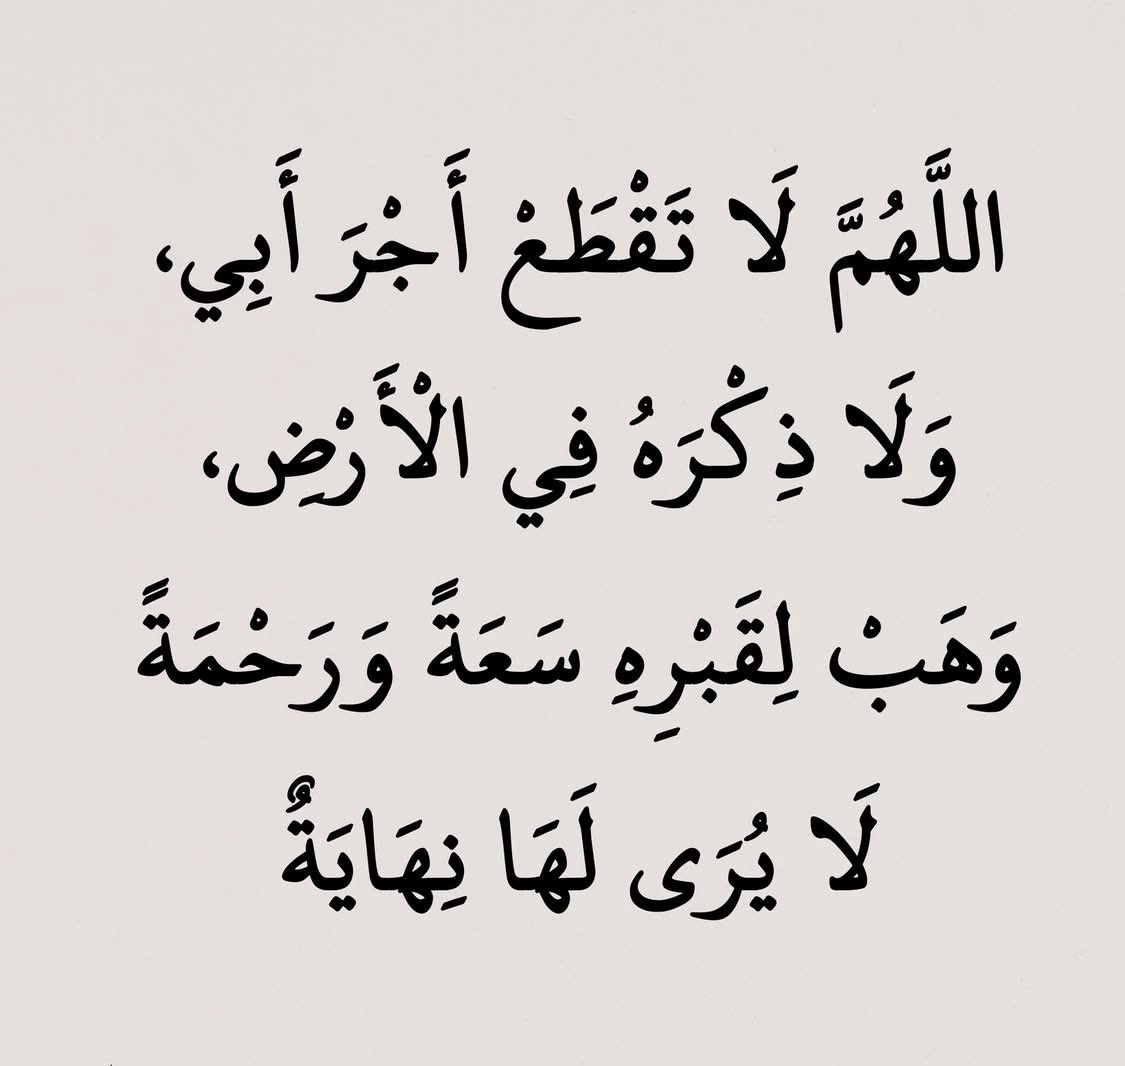 اللَّهُمَّ لَا تَقْطَعْ أَجْرَ أَبِي،
وَلَا ذِكْرَهُ فِي الْأَرْضِ،
وَهَبْ لِقَبْرِهِ سَعَةً وَرَحْمَةً
لَا يُرَى لَهَا نِهَايَةٌ